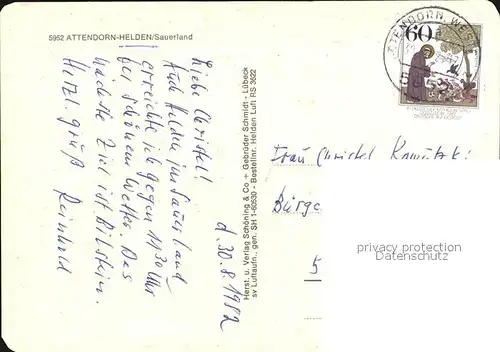 5952 ATTENDORN-HELDEN/Sauerland
d. 30.8.1982
Liebe Christel!
Auch Helden im Sauerland
erreichte ich gegen 11 30 Uhr
bei schönem Wetter. Das
nächste Ziel ist Bilstein.
Herzl. Grüß
Reinhold
Herst. u. Verlag Schöning & Co + Gebrüder Schmidt - Lübeck
sv Luftaufn., gen. SH 1-60530 - Bestellnr. Helden Luft RS 3622
ATTENDORN, WESTF
60
Frau Christel
Bürge
5
privacy protection
Datenschutz